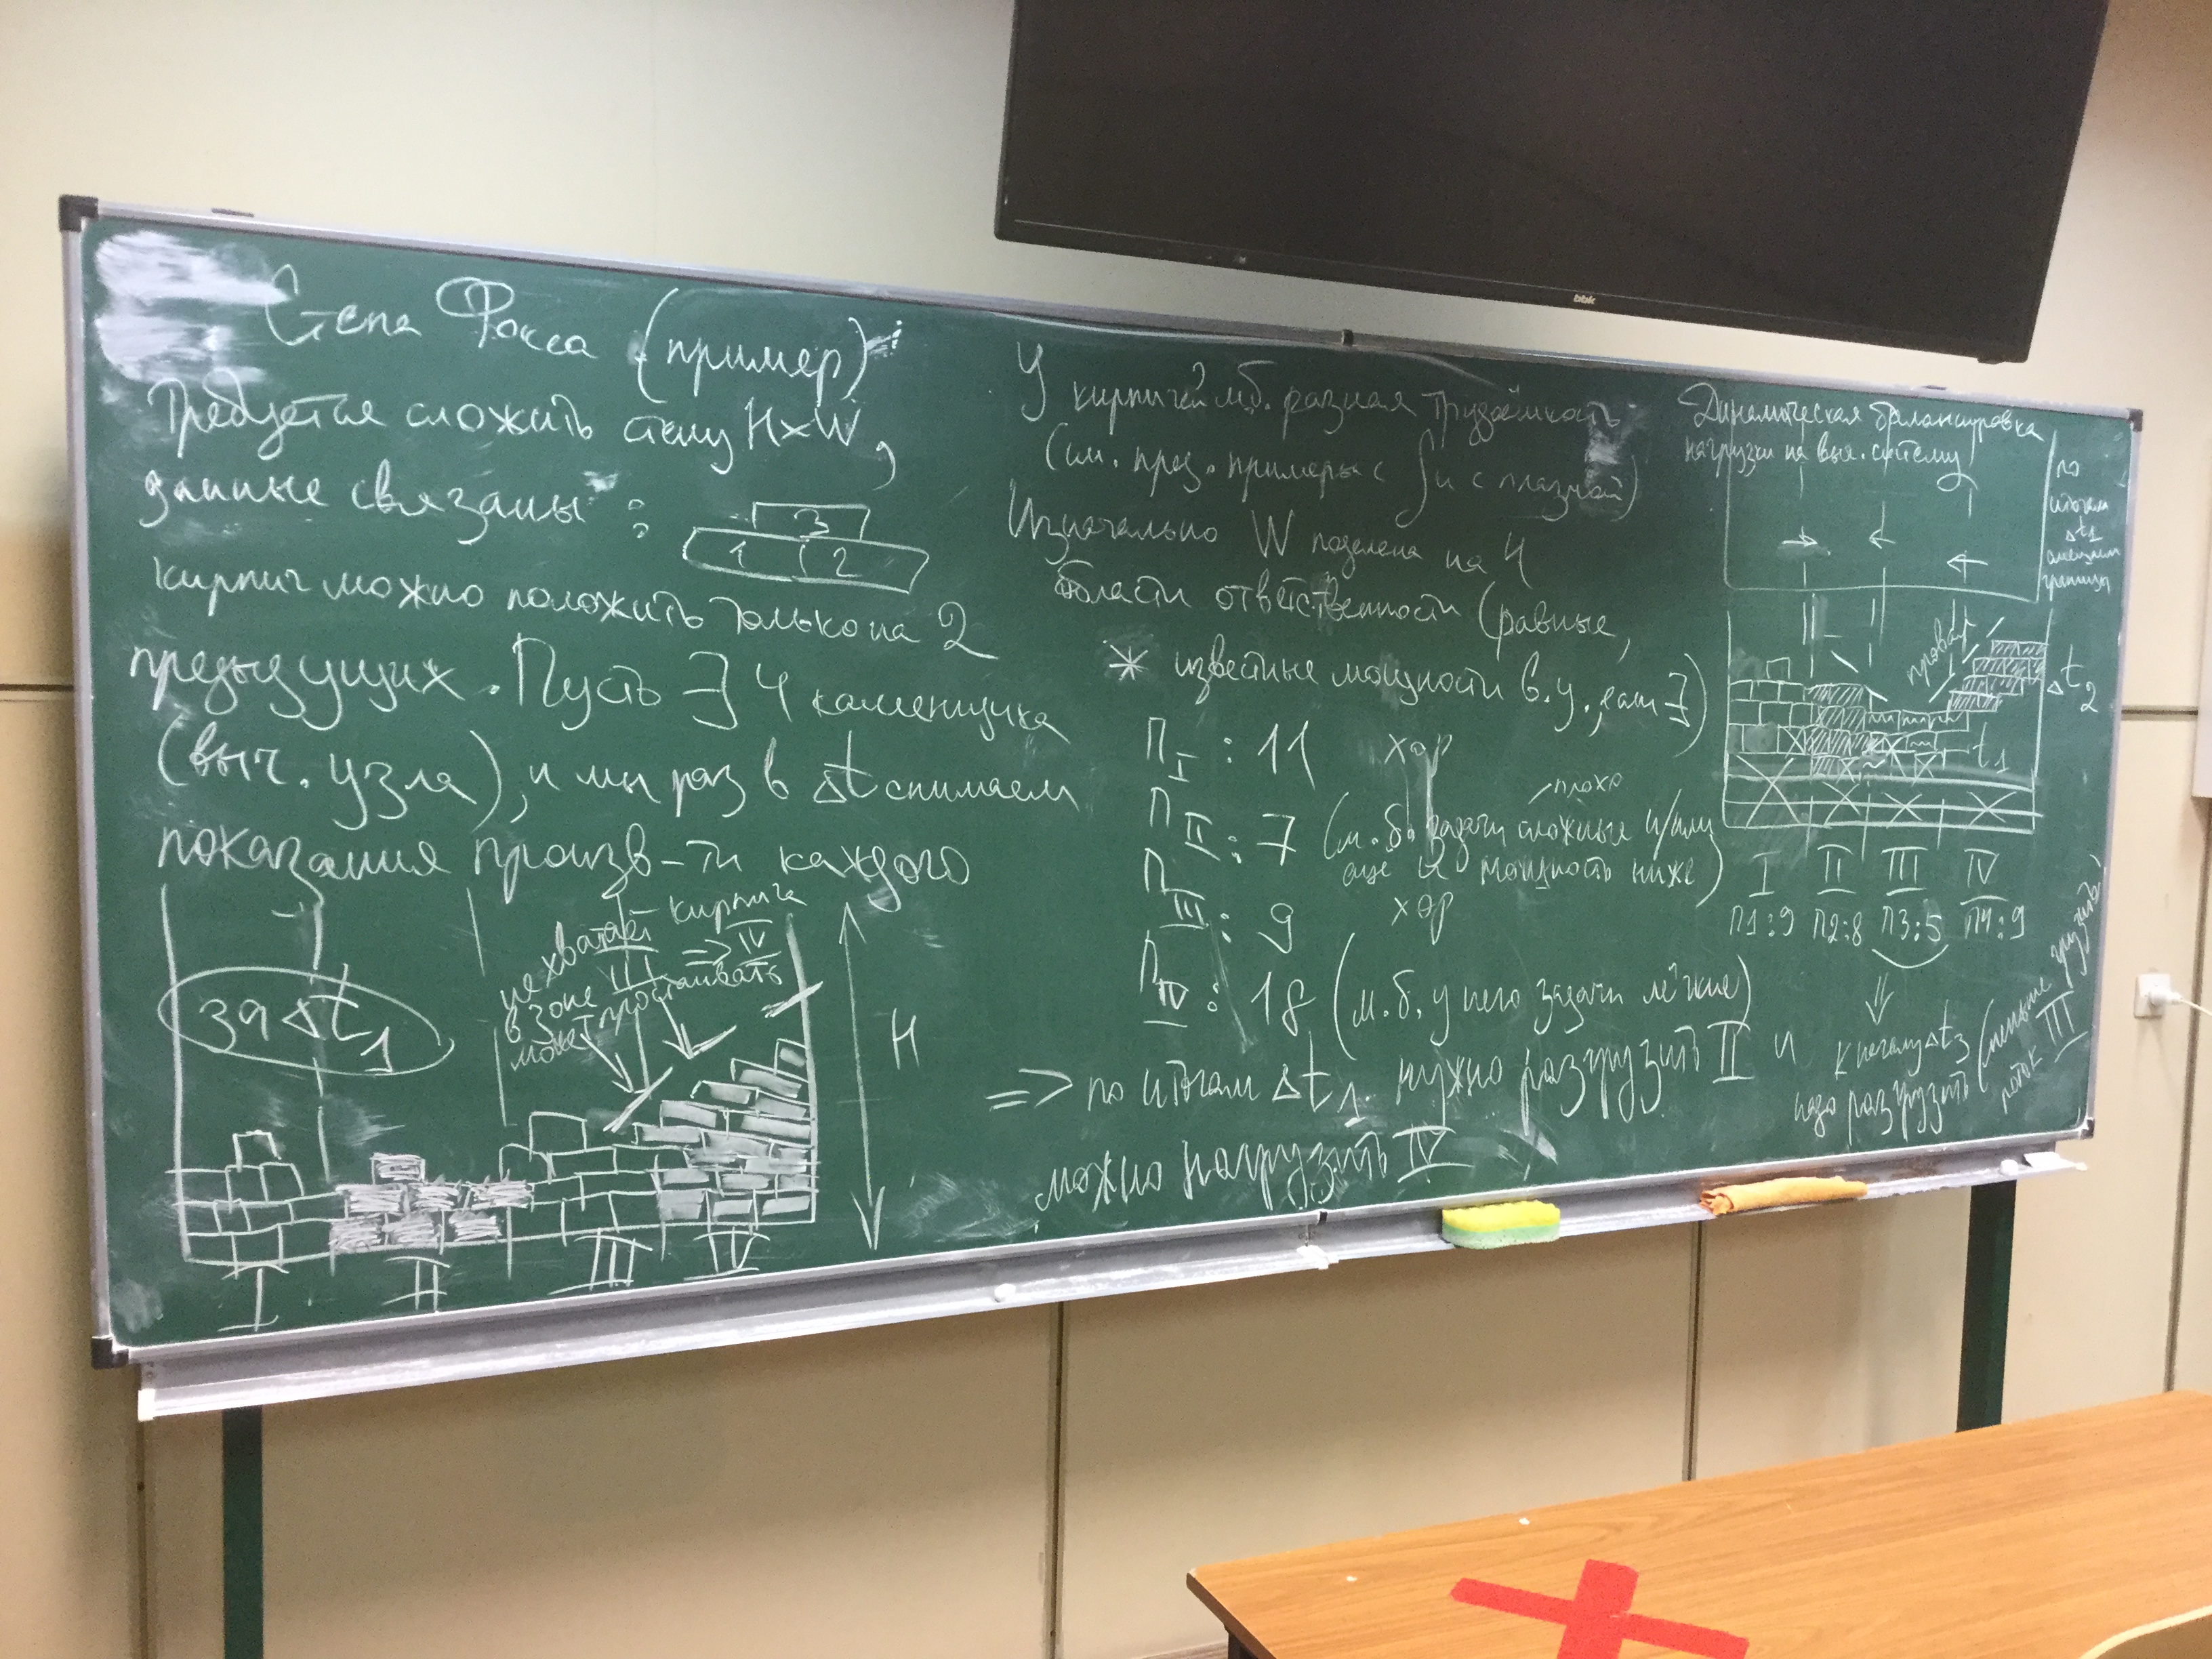 Стена Фокса (пример):
Требуется сложить стену H×W,
данные связаны:
3
1 2
кирпич можно положить только на 2
предыдущих. Пусть ∃ 4 каменщика
(выч. узла), и мы раз в Δt снимаем
показания произв-ти каждого
за Δt1
не хватает кирпича
в зоне III => IV
может простаивать
H
I II III IV
У кирпичей м.б. разная трудоёмкость
(см. през. примеры с ∫ и с плазмой)
Изначально W поделена на 4
области ответственности (равные,
* известные мощности в.у., если ∃)
П I : 11 хор
плохо
П II : 7 (м.б. задачи сложные и/или
ещё и мощность ниже)
П III : 9 хор
П IV : 18 (м.б. у него задачи лёгкие)
=> по итогам Δt1 нужно разгрузить II и
можно нагрузить IV
Динамическая балансировка
нагрузки на выч. систему
по
итогам
Δt1
смещаем
границы
провал
Δt2
t1
I II III IV
П1:9 П2:8 П3:5 П4:9
к началу Δt3
надо разгрузить (меньше грузить)
поток III
bbk